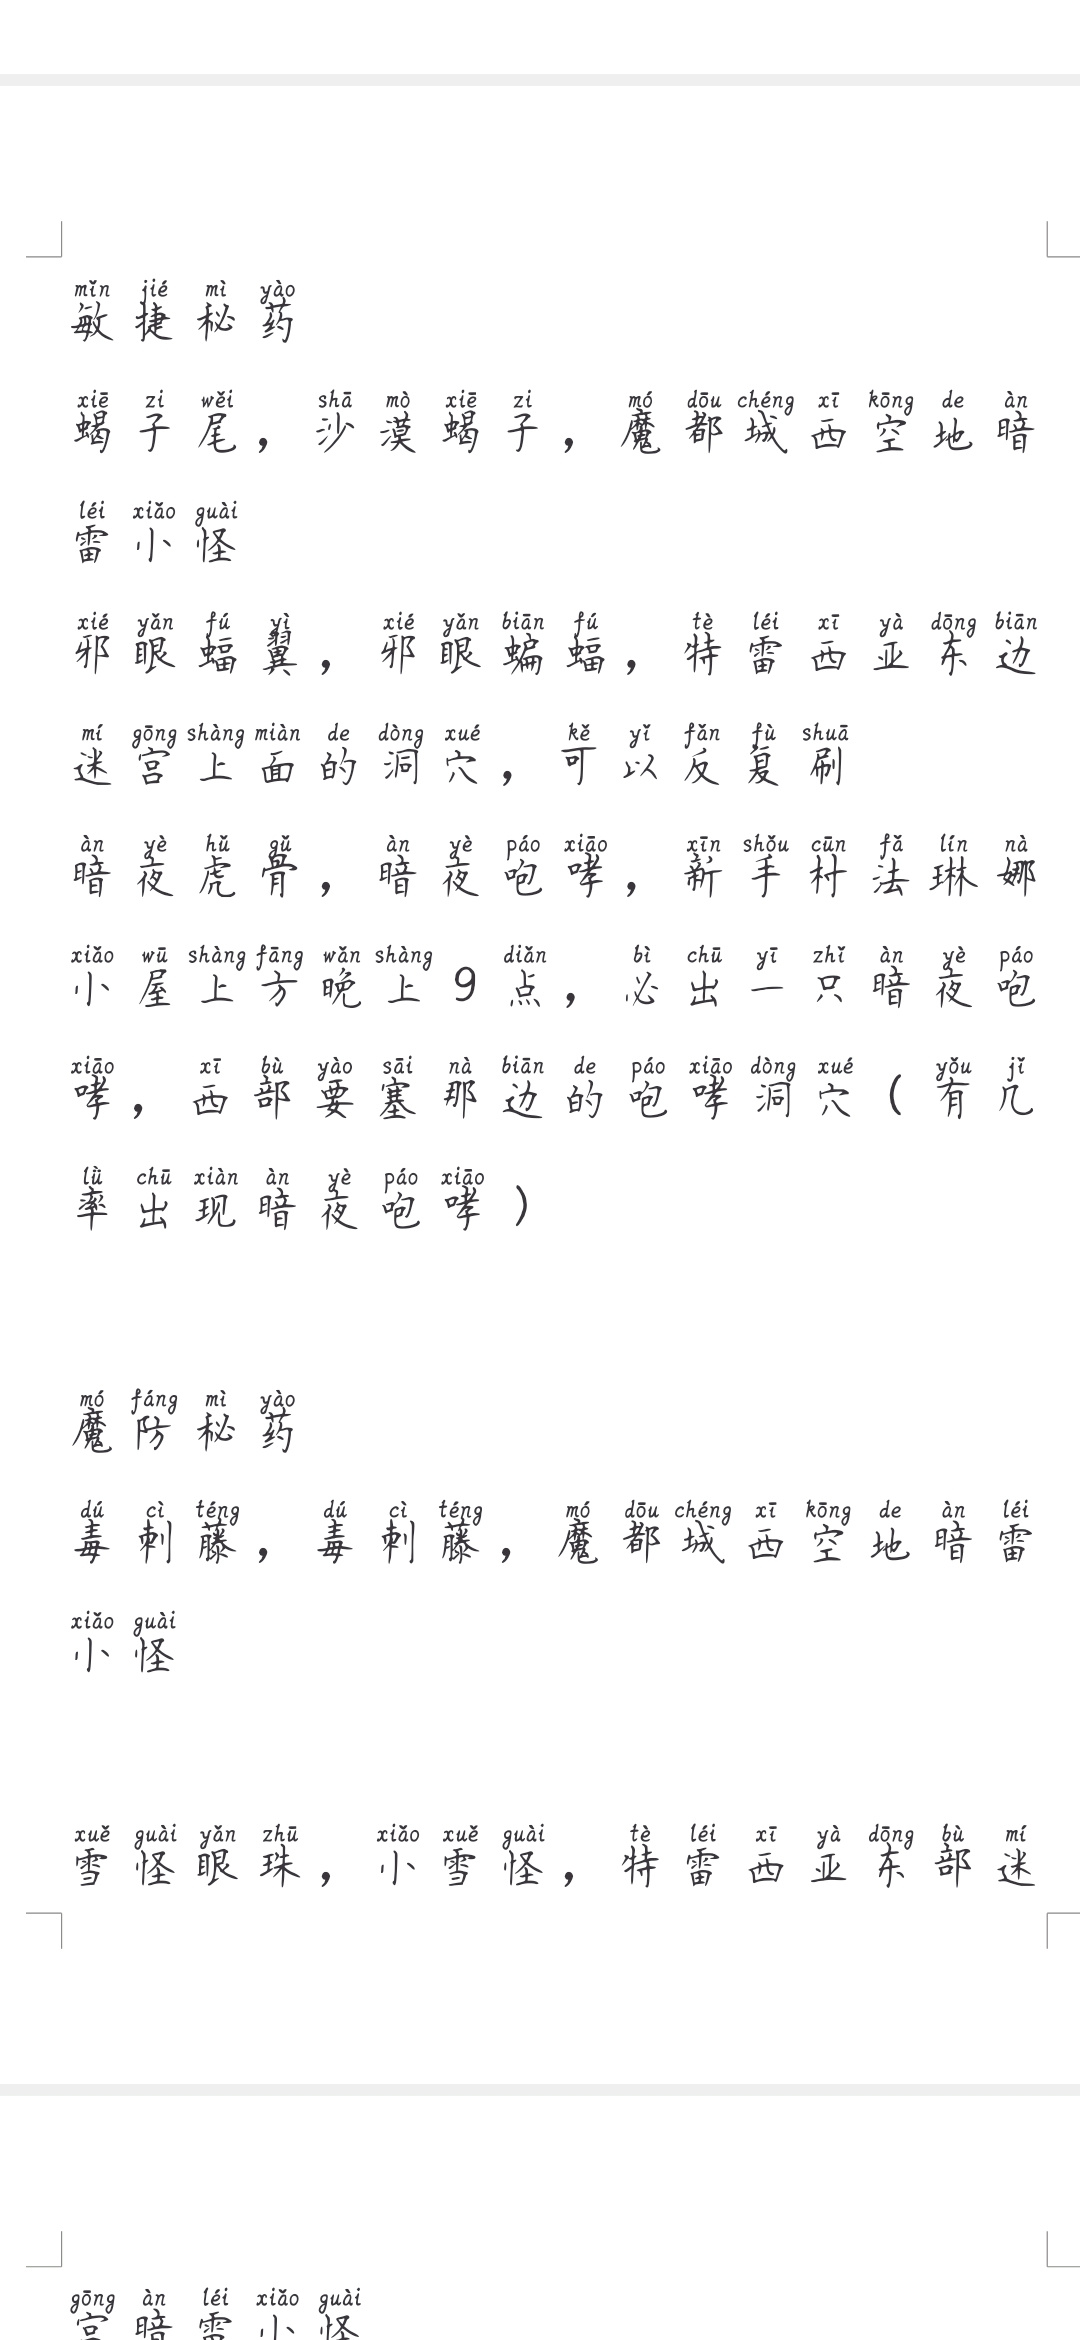 mǐn jié mì yào
敏捷秘药
xiē zi wěi shā mò xiē zi mó dōu chéng xī kōng de àn
蝎子尾，沙漠蝎子，魔都城西空地暗
léi xiǎo guài
雷小怪
xié yǎn fú yì xié yǎn biān fú tè léi xī yà dōng biān
邪眼蝠翼，邪眼蝙蝠，特雷西亚东边
mí gōng shàng miàn de dòng xué kě yǐ fǎn fù shuā
迷宫上面的洞穴，可以反复刷
àn yè hǔ gǔ àn yè páo xiāo xīn shǒu cūn fǎ lín nà
暗夜虎骨，暗夜咆哮，新手村法琳娜
xiǎo wū shàng fāng wǎn shàng diǎn bì chū yī zhǐ àn yè páo
小屋上方晚上9点，必出一只暗夜咆
xiāo xī bù yào sāi nà biān de páo xiāo dòng xué yǒu jǐ
哮，西部要塞那边的咆哮洞穴（有几
lǜ chū xiàn àn yè páo xiāo
率出现暗夜咆哮）
mó fáng mì yào
魔防秘药
dú cì téng dú cì téng mó dōu chéng xī kōng de àn léi
毒刺藤，毒刺藤，魔都城西空地暗雷
xiǎo guài
小怪
xuě guài yǎn zhū xiǎo xuě guài tè léi xī yà dōng bù mí
雪怪眼珠，小雪怪，特雷西亚东部迷
gōng àn léi xiǎo guài
宫暗雷小怪